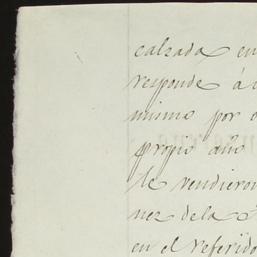 calzada en
responde á
mismo por
propio año
le vendieron
nez dela
en el referido